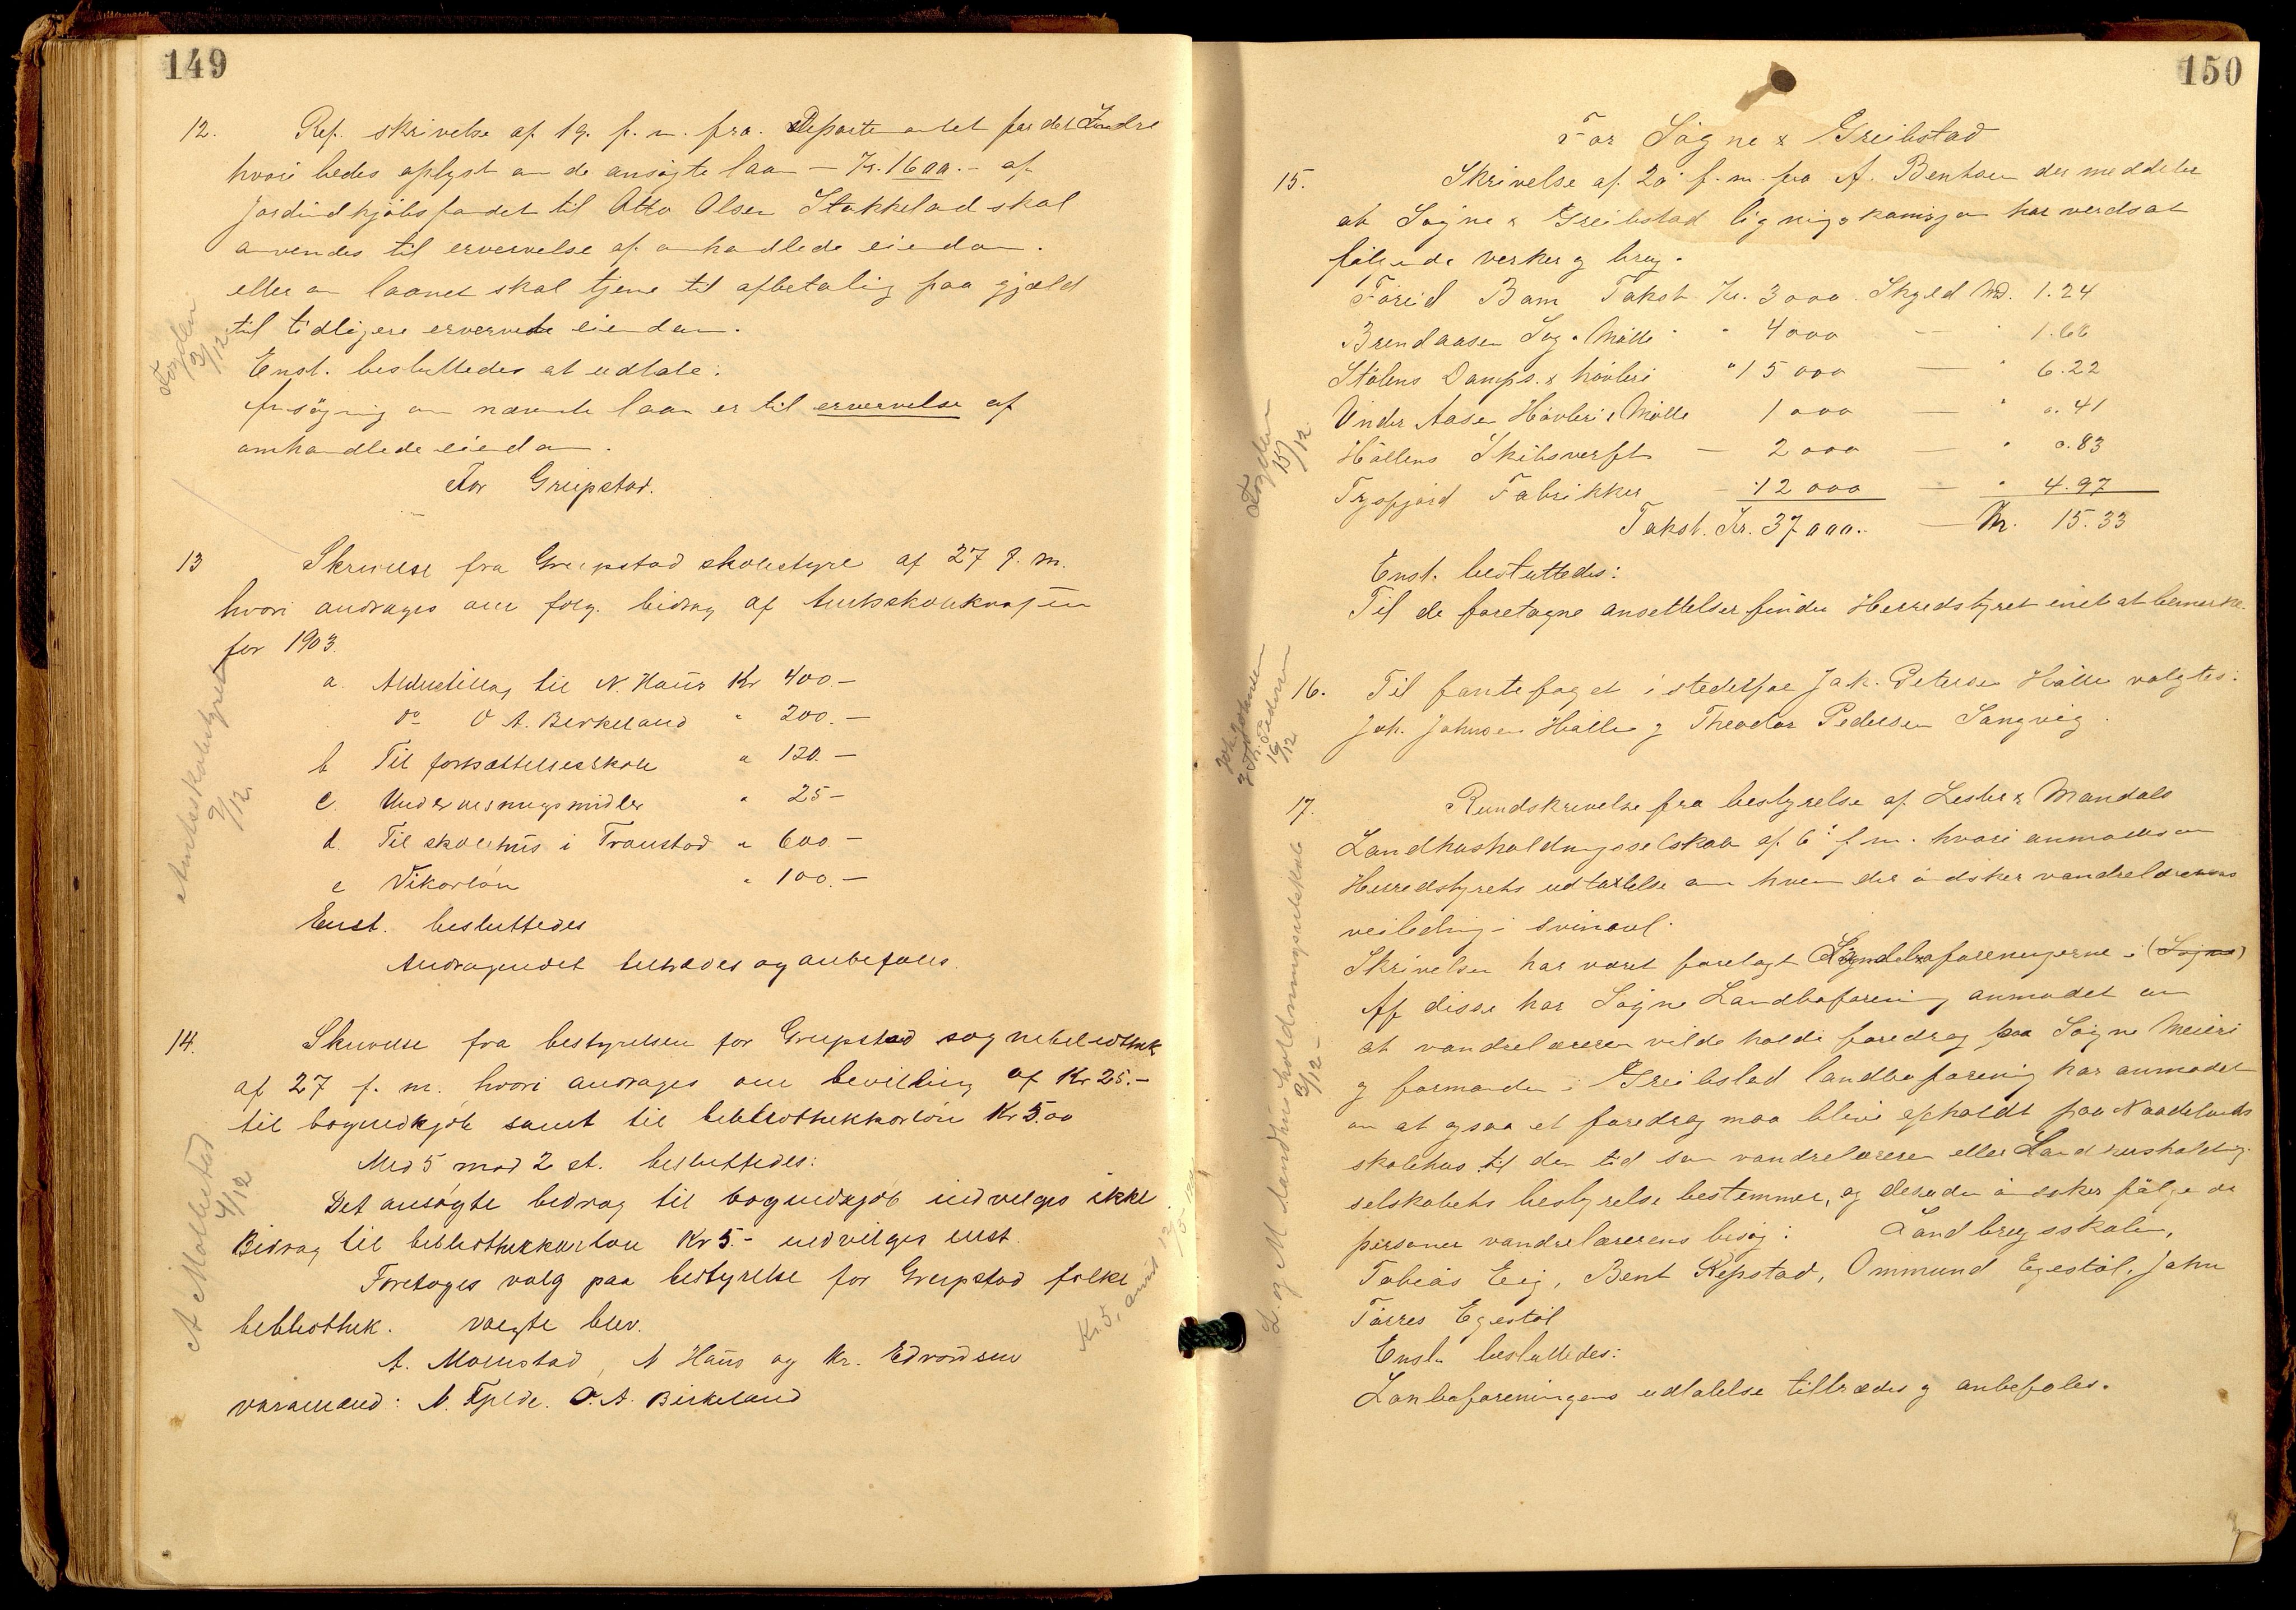 149
12. Ref. skrivelse af 19. f. m. fra. Departementet for det Indre
hvori bedes oplyst om de ansøgte laan – Kr. 1600.- af
Jordindkjøbsfondet til Otto Olsen Stokkeland skal
anvendes til ervervelse af omhandlede eiendom.
eller om laanet skal tjene til afbetaling paa gjæld
til tidligere ervervede eiendom.
Enst. besluttedes at udtale:
Ansøgning om nævnte laan er til ervervelse af
omhandlede eiendom.
For Greipstad.
Fogden 3/12
13 Skrivelse fra Greipstad skolestyre af 27 f. m.
hvori andrages om følg. bidrag af Amtsskolekassen
for 1903.
a. Alderstillæg til N. Haus Kr 400 –
do O A. Birkeland " 200. –
b Til fortsættelsesskole " 120. –
c. Undervisningsmidler " 25 –
d. Til skolehus i Traustad " 600 –
e Vikarløn " 100. –
Enst. besluttedes
Andragendet tiltrædes og anbefales.
Amtsskolestyret 2/12.
14. Skrivelse fra bestyrelsen for Greipstad sognebibliothek
af 27 f. m. hvori andrages om bevilling af Kr 25.–
til bogindkjøb samt til bibliothekkarløn Kr 5.00
Med 5 mod 2 st. besluttedes:
Det ansøgte bidrag til bogindkjøb indvilges ikke.
Bidrag til bibliothekkarløn Kr 5.– indvilges enst.
Foretoges valg paa bestyrelse for Greipstad folke
bibliothek. valgte blev.
A. Mollestad, N Haus og Kr. Edvardsen
varamænd: N. Fjelde. O. A. Birkeland
A Mollestad 4/12
Kr. 5, anvist 12/5
150
For Søgne & Greibstad
15. Skrivelse af. 20' f. m. fra A. Bentsen der meddeler
at Søgne & Greibstad ligningskomisjon har verdsat
følgende verker og brug.
Takst Kr. 3000 Skyld M. 1.24
Brendaasen Sag & Mølle " " 4000 – " 1.66
Stølens Damps. & høvleri " 15000 – " 6.22
Under Aasen Høvleri & Mølle 1000 – " 0.41
Høllens Skibsverft – 2000 – " 0.83
Trysfjord Fabrikker – 12000 – " 4.97
Takst. Kr. 37000.- – M. 15.33
Enst. besluttedes:
Til de foretagne ansettelser finder Herredstyret intet at bemerke.
Fogden 15/12
16. Til fantefoged i stedetfor Jak. Petersen Hølle valgtes:
Joh. Johnsen Hølle og Theodor Pedersen Langvig.
Joh. Johnsen
& Th. Pedersen
16/12
17. Rundskrivelse fra bestyrelse af Lister & Mandals
Landhusholdningsselskab af 6' f. m. hvori anmodes om
Herredstyrets udtalelse om hvem der ønsker vandrelærerens
veiledning i svineavl.
Skrivelsen har været forelagt Landboforeningerne i (Søgne)
Af disse har Søgne Landboforening anmodet om
at vandrelæreren vilde holde foredrag paa Søgne Meieri
og formanden i Greibstad landboforening har anmodet
om at ogsaa et foredrag maa blive afholdt paa Naadelands
skolehus til den tid som vandrelæreren eller Landhusholdnings
selskabets bestyrelse bestemmer, og desuden ønsker følgende
personer vandrelærerens besøg: Landbrugsskolen,
Tobias Eeg, Bent Repstad, Ommund Egestøl, John
Tørres Egestøl
Enst. besluttedes:
Lanboforeningens udtalelse tiltrædes og anbefales.
L. og M Landhusholdningsselskab 2/12 –